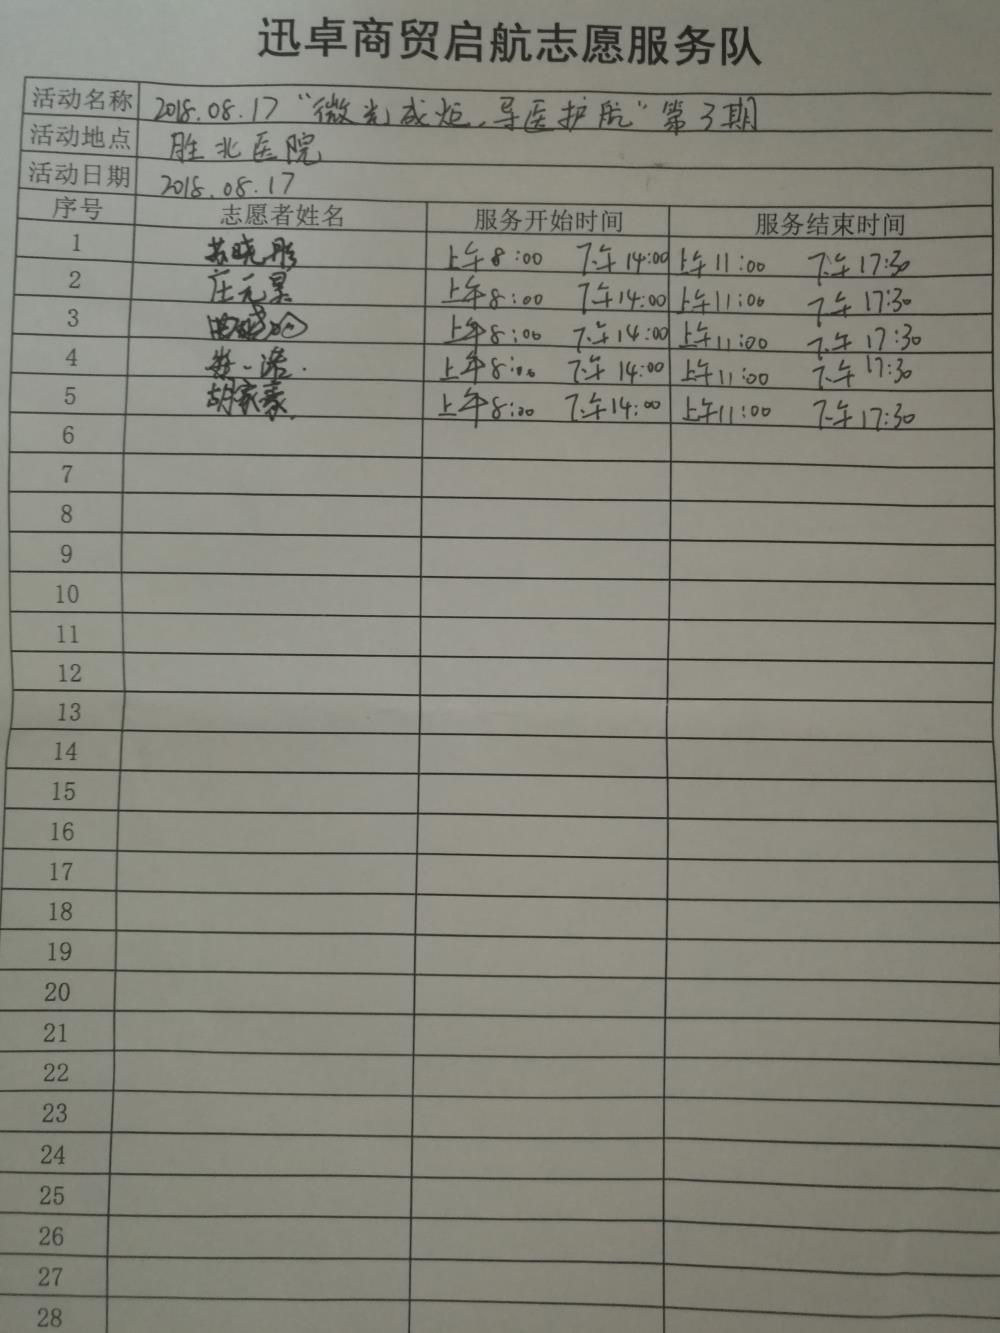 迅卓商贸启航志愿服务队
活动名称 2018.08.17“微光成炬,导医护航”第3期
活动地点 胜北医院
活动日期 2018.08.17
序号 志愿者姓名 服务开始时间 服务结束时间
1 苏晓彤 上午8:00 下午14:00 上午11:00 下午17:30
2 庄元昊 上午8:00 下午14:00 上午11:00 下午17:30
3 上午8:00 下午14:00 上午11:00 下午17:30
4 上午8:00 下午14:00 上午11:00 下午17:30
5 胡家豪 上午8:00 下午14:00 上午11:00 下午17:30
6
7
8
9
10
11
12
13
14
15
16
17
18
19
20
21
22
23
24
25
26
27
28